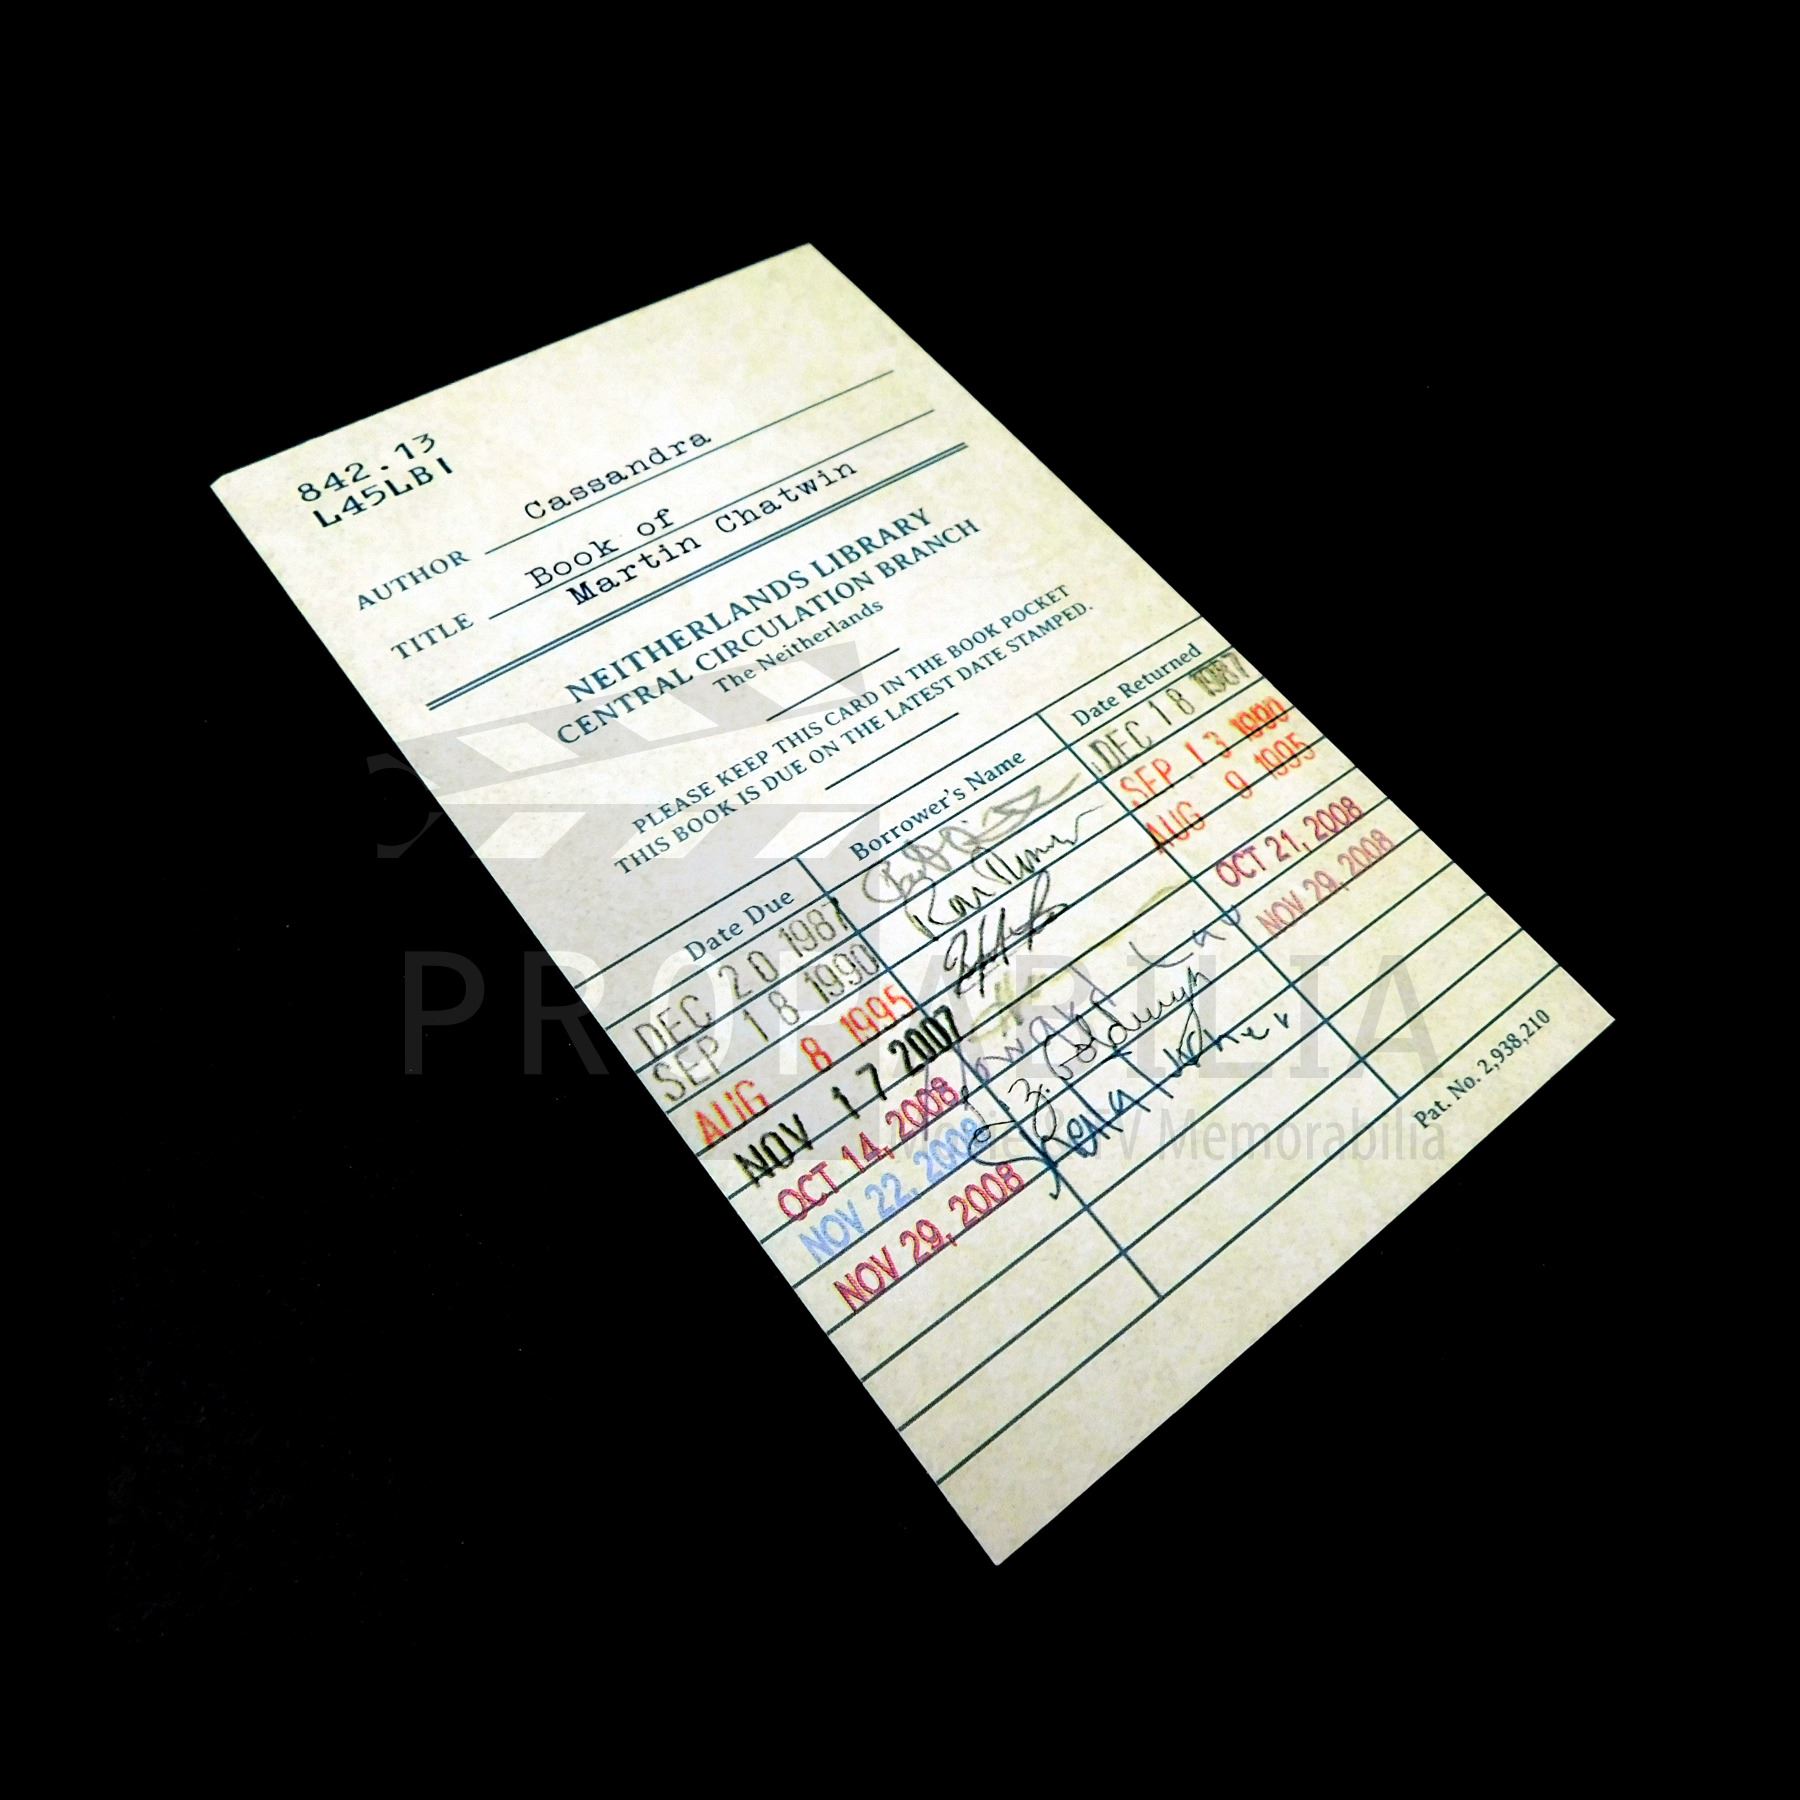 842.13
L45LBI
AUTHOR Cassandra
TITLE Book of
Martin Chatwin
NEITHERLANDS LIBRARY
CENTRAL CIRCULATION BRANCH
The Neitherlands
PLEASE KEEP THIS CARD IN THE BOOK POCKET
THIS BOOK IS DUE ON THE LATEST DATE STAMPED.
Date Due Borrower's Name Date Returned
DEC 20 1987 DEC 18 1987
SEP 18 1990 SEP 13 1990
AUG 8 1995 AUG 9 1995
NOV 17 2007
OCT 14, 2008 OCT 21, 2008
NOV 22, 2008 NOV 29, 2008
NOV 29, 2008
Pat. No. 2,938,210
PROPABILIA
Movie & TV Memorabilia